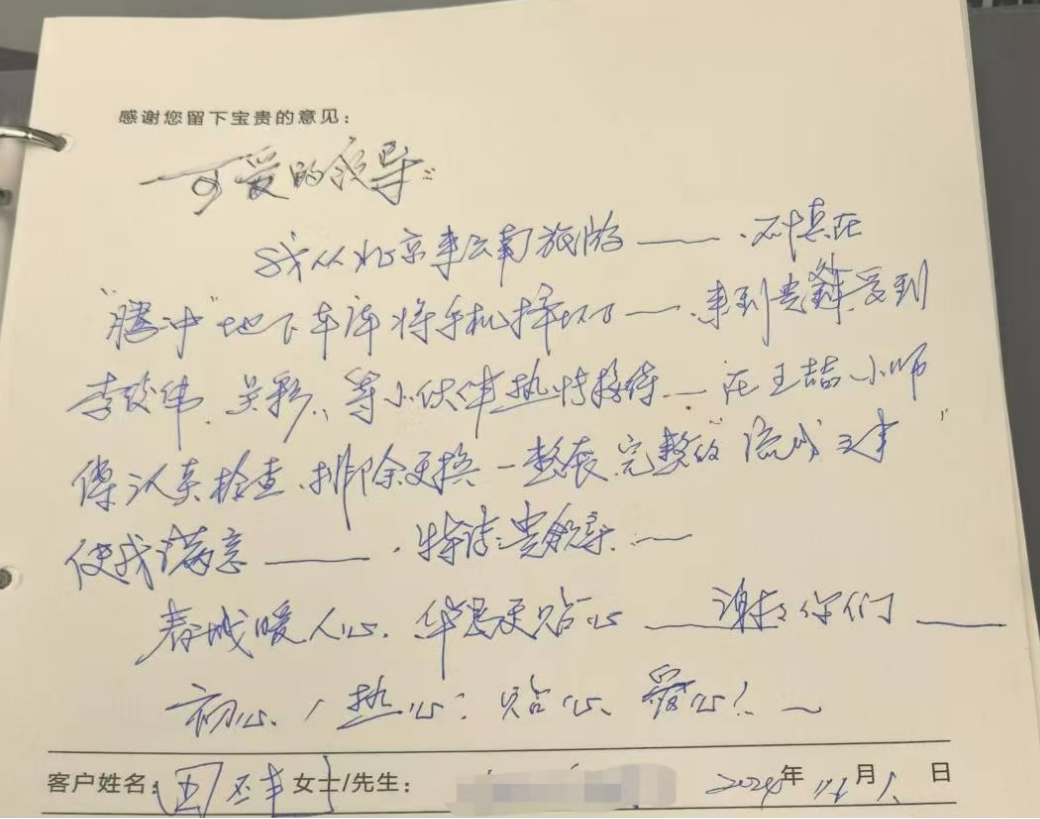 感谢您留下宝贵的意见：
可爱的领导：
我从北京来云南旅游——.不慎在
"腾冲"地下车库将手机摔坏了——.来到贵群受到
李 伟、吴彩、等小伙伴热情接待——在王喆小师
傅认真检查、排除更换一整表完整的"流 "
使我满意——.特 贵领导.——
春城暖人心.华 更贴心——谢谢你们——
初心、热心：贴心、爱心！～
客户姓名： 女士/先生： 2024年11月1日